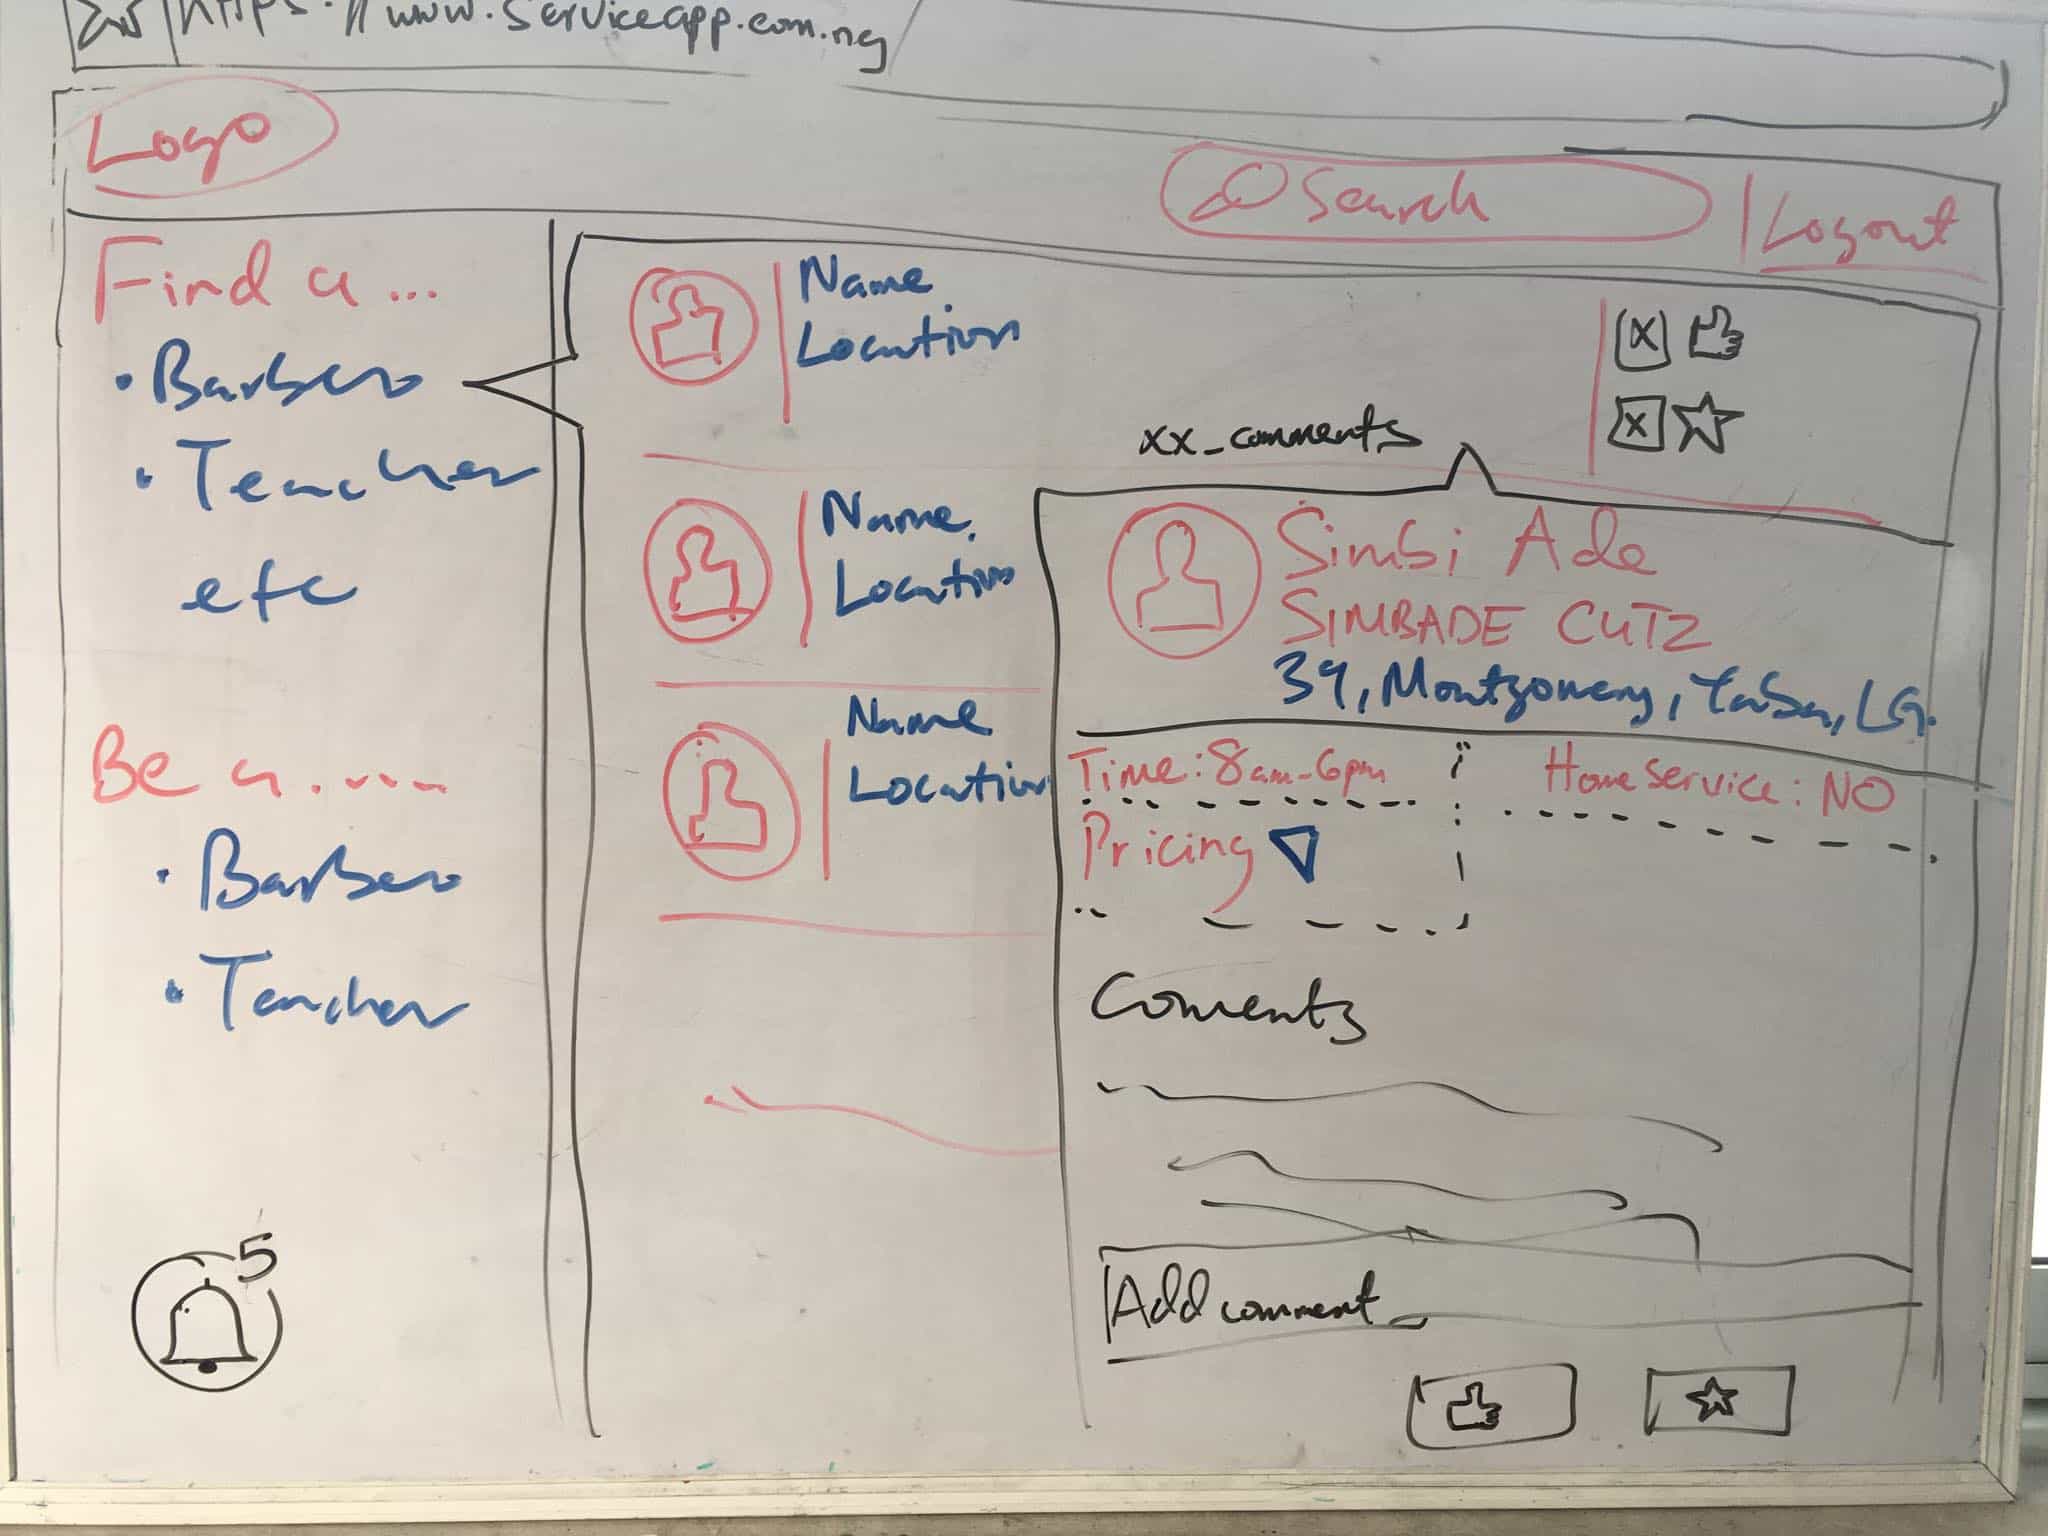 https://www.serviceapp.com.ng
Logo
Search
Logout
Find a ...
• Barber
• Teacher
etc
Be a ....
• Barber
• Teacher
5
Name
Location
Name
Location
Name
Location
X
X
xx_comments
Simbi Ade
SIMBADE CUTZ
39, Montgomery, Yaba, LG.
Time: 8am-6pm
Home Service: NO
Pricing
Coments
Add comment